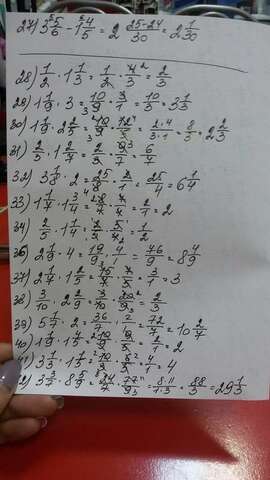 27) 3 5/6 - 1 4/5 = 2 25-24/30 = 2 1/30
28) 1/2 · 1 1/3 = 1/2 · 4/3 = 2/3
29) 1 1/9 · 3 = 10/9 · 3/1 = 10/3 = 3 1/3
30) 1 1/9 · 2 2/5 = 10/9 · 12/5 = 2·4/3·1 = 8/3 = 2 2/3
31) 2/3 · 1 2/7 = 2/3 · 9/7 = 6/7
32) 3 1/8 · 2 = 25/8 · 2/1 = 25/4 = 6 1/4
33) 1 1/7 · 1 3/4 = 8/7 · 7/4 = 2/1 = 2
34) 2/5 · 1 1/4 = 2/5 · 5/4 = 1/2
36) 2 1/9 · 4 = 19/9 · 4/1 = 76/9 = 8 4/9
37) 2 1/7 · 1 2/5 = 15/7 · 7/5 = 3/1 = 3
38) 3/10 · 2 2/9 = 3/10 · 20/9 = 2/3
39) 5 1/7 · 2 = 36/7 · 2/1 = 72/7 = 10 2/7
40) 1 1/9 · 1 4/5 = 10/9 · 9/5 = 2/1 = 2
41) 3 1/3 · 1 1/5 = 10/3 · 6/5 = 4/1 = 4
2) 3 3/7 · 8 5/9 = 24/7 · 77/9 = 8·11/1·3 = 88/3 = 29 1/3